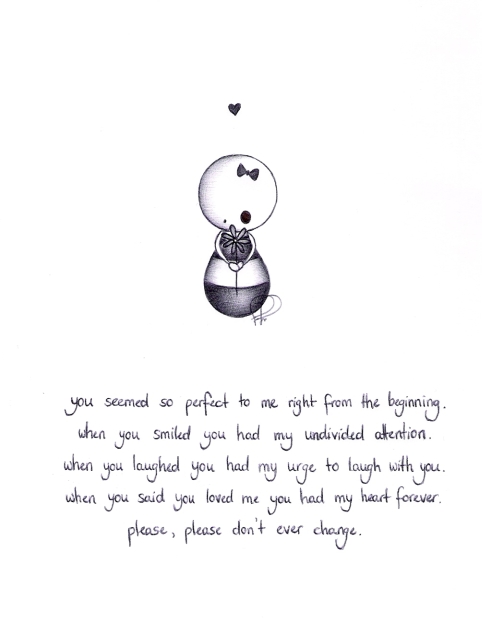 you seemed so perfect to me right from the beginning.
when you smiled you had my undivided attention.
when you laughed you had my urge to laugh with you.
when you said you loved me you had my heart forever.
please, please don't ever change.